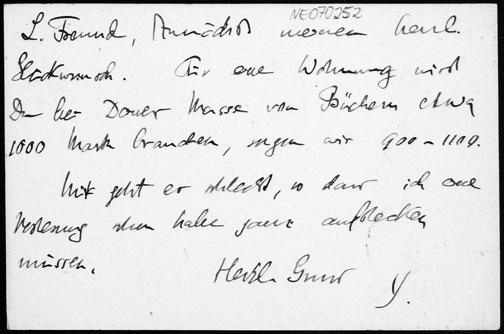 NE070252
L. Freund, zunächst meinen herzl.
Glückwunsch. Für eine Wohnung wirst
Du bei Deiner Masse von Büchern etwa
1000 Mark brauchen, sagen wir 900–1100.
Mir geht es schlecht, so dass ich eine
Vorlesung schon habe ganz aufstecken
müssen.
Herzl. Gruss